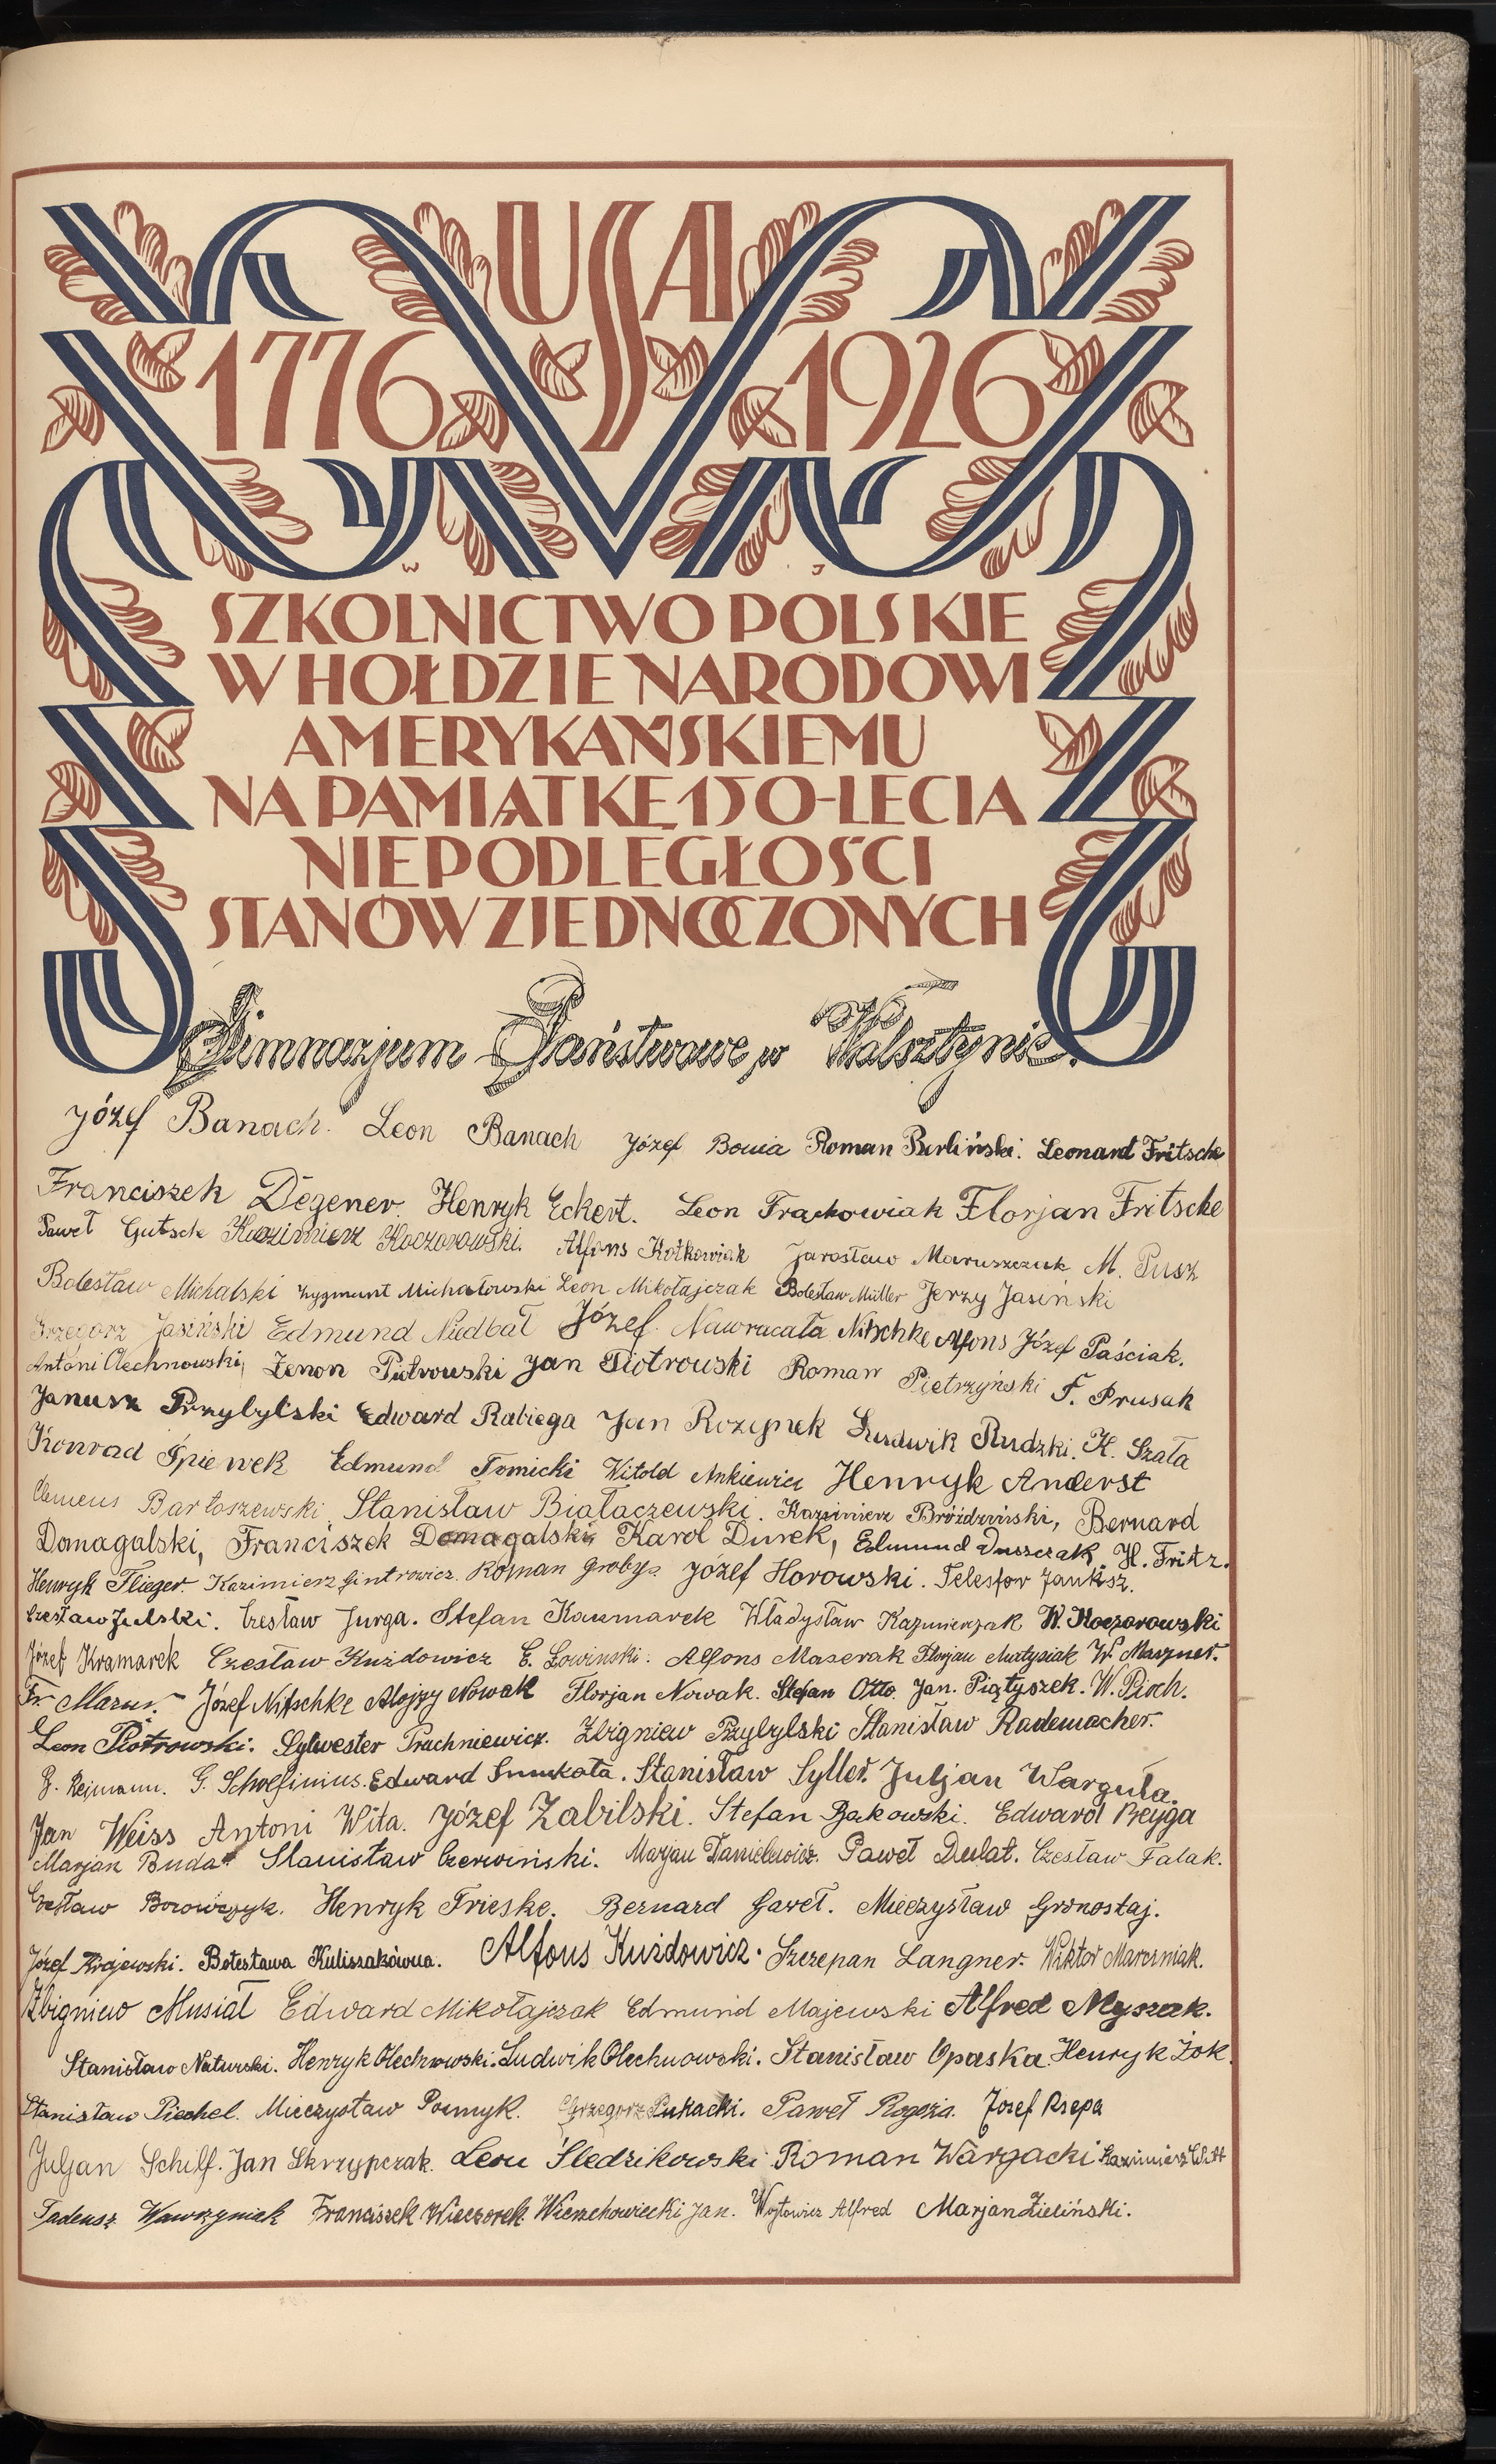 USA
1776 1926
W J
SZKOLNICTWO POLSKIE
W HOŁDZIE NARODOWI
AMERYKAŃSKIEMU
NA PAMIĄTKĘ 150-LECIA
NIEPODLEGŁOŚCI
STANÓW ZJEDNOCZONYCH
Gimnazjum Państwowe w Wolsztynie.
Józef Banach. Leon Banach Józef Bonia Roman Burliński. Leonard Fritsche
Franciszek Degener. Henryk Eckert. Leon Frąckowiak Florjan Fritsche
Paweł Gutsche Kazimierz Koczorowski. Alfons Kotkowiak Jarosław Maruszczak M. Pusz
Bolesław Michalski Zygmunt Michałowski Leon Mikołajczak Bolesław Müller Jerzy Jasiński
Grzegorz Jasiński Edmund Niedbał Józef Nawracała Nitschke Alfons Józef Paściak.
Antoni Olechnowski, Zenon Piotrowski Jan Piotrowski Roman Pietrzyński F. Prusak
Janusz Przybylski Edward Rabiega Jan Rozynek Ludwik Rudzki. K. Szała
Konrad Śpiewek Edmund Tomicki Witold Ankiewicz Henryk Anderst
Clemens Bartoszewski, Stanisław Białaczewski. Kazimierz Bróździński, Bernard
Domagalski, Franciszek Domagalski, Karol Durek, Edmund Duszczak. H. Fritz.
Henryk Flieger. Kazimierz Gintrowicz. Roman Grobys. Józef Horowski. Telesfor Jankisz.
Czesław Julski. Czesław Jurga. Stefan Kaczmarek Władysław Kaźmierczak W. Koczorowski
Józef Kramarek Czesław Kuźdowicz E. Łowinski. Alfons Maserak Florjan Matysiak W. Mazner.
Fr. Mazur. Józef Nitschke Alojzy Nowak Florjan Nowak. Stefan Otto. Jan. Piątyszek. W. Pioch.
Leon Piotrowski. Sylwester Prachniewicz. Zbigniew Przybylski Stanisław Rademacher.
Z. Rejmann. G. Schoefinius. Edward Smukała. Stanisław Syller. Juljan Warguła.
Jan Weiss Antoni Wita. Józef Zabilski. Stefan Bąkowski. Edward Beyga
Marjan Buda Stanisław Czerwiński. Marjan Danielewicz. Paweł Dulat. Czesław Falak.
Czesław Borowczyk. Henryk Frieske. Bernard Gaweł. Mieczysław Gronostaj.
Józef Krajewski. Bolesława Kuliszakówna. Alfons Kuźdowicz. Szczepan Langner. Wiktor Marcrniak.
Zbigniew Musiał Edward Mikołajczak Edmund Majewski Alfred Myszak.
Stanisław Naturski. Henryk Olechnowski. Ludwik Olechnowski. Stanisław Opaska. Henryk Żok.
Stanisław Piechel. Mieczysław Pomyk. Grzegorz Pukacki. Paweł Rogozia. Josef Rzepa
Juljan Schilf. Jan Skrzypczak. Leon Śledzikowski Roman Wargacki Kazimierz Witt
Tadeusz Wawrzyniak Franciszek Wieczorek Wierzchowiecki Jan. Wojtowicz Alfred Marjan Zieliński.